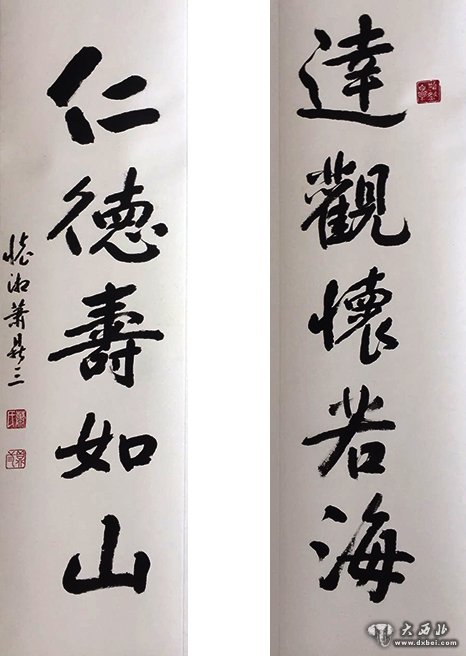 達觀懷若海
仁德壽如山
蕭鼎三
大西北
www.dxbei.com